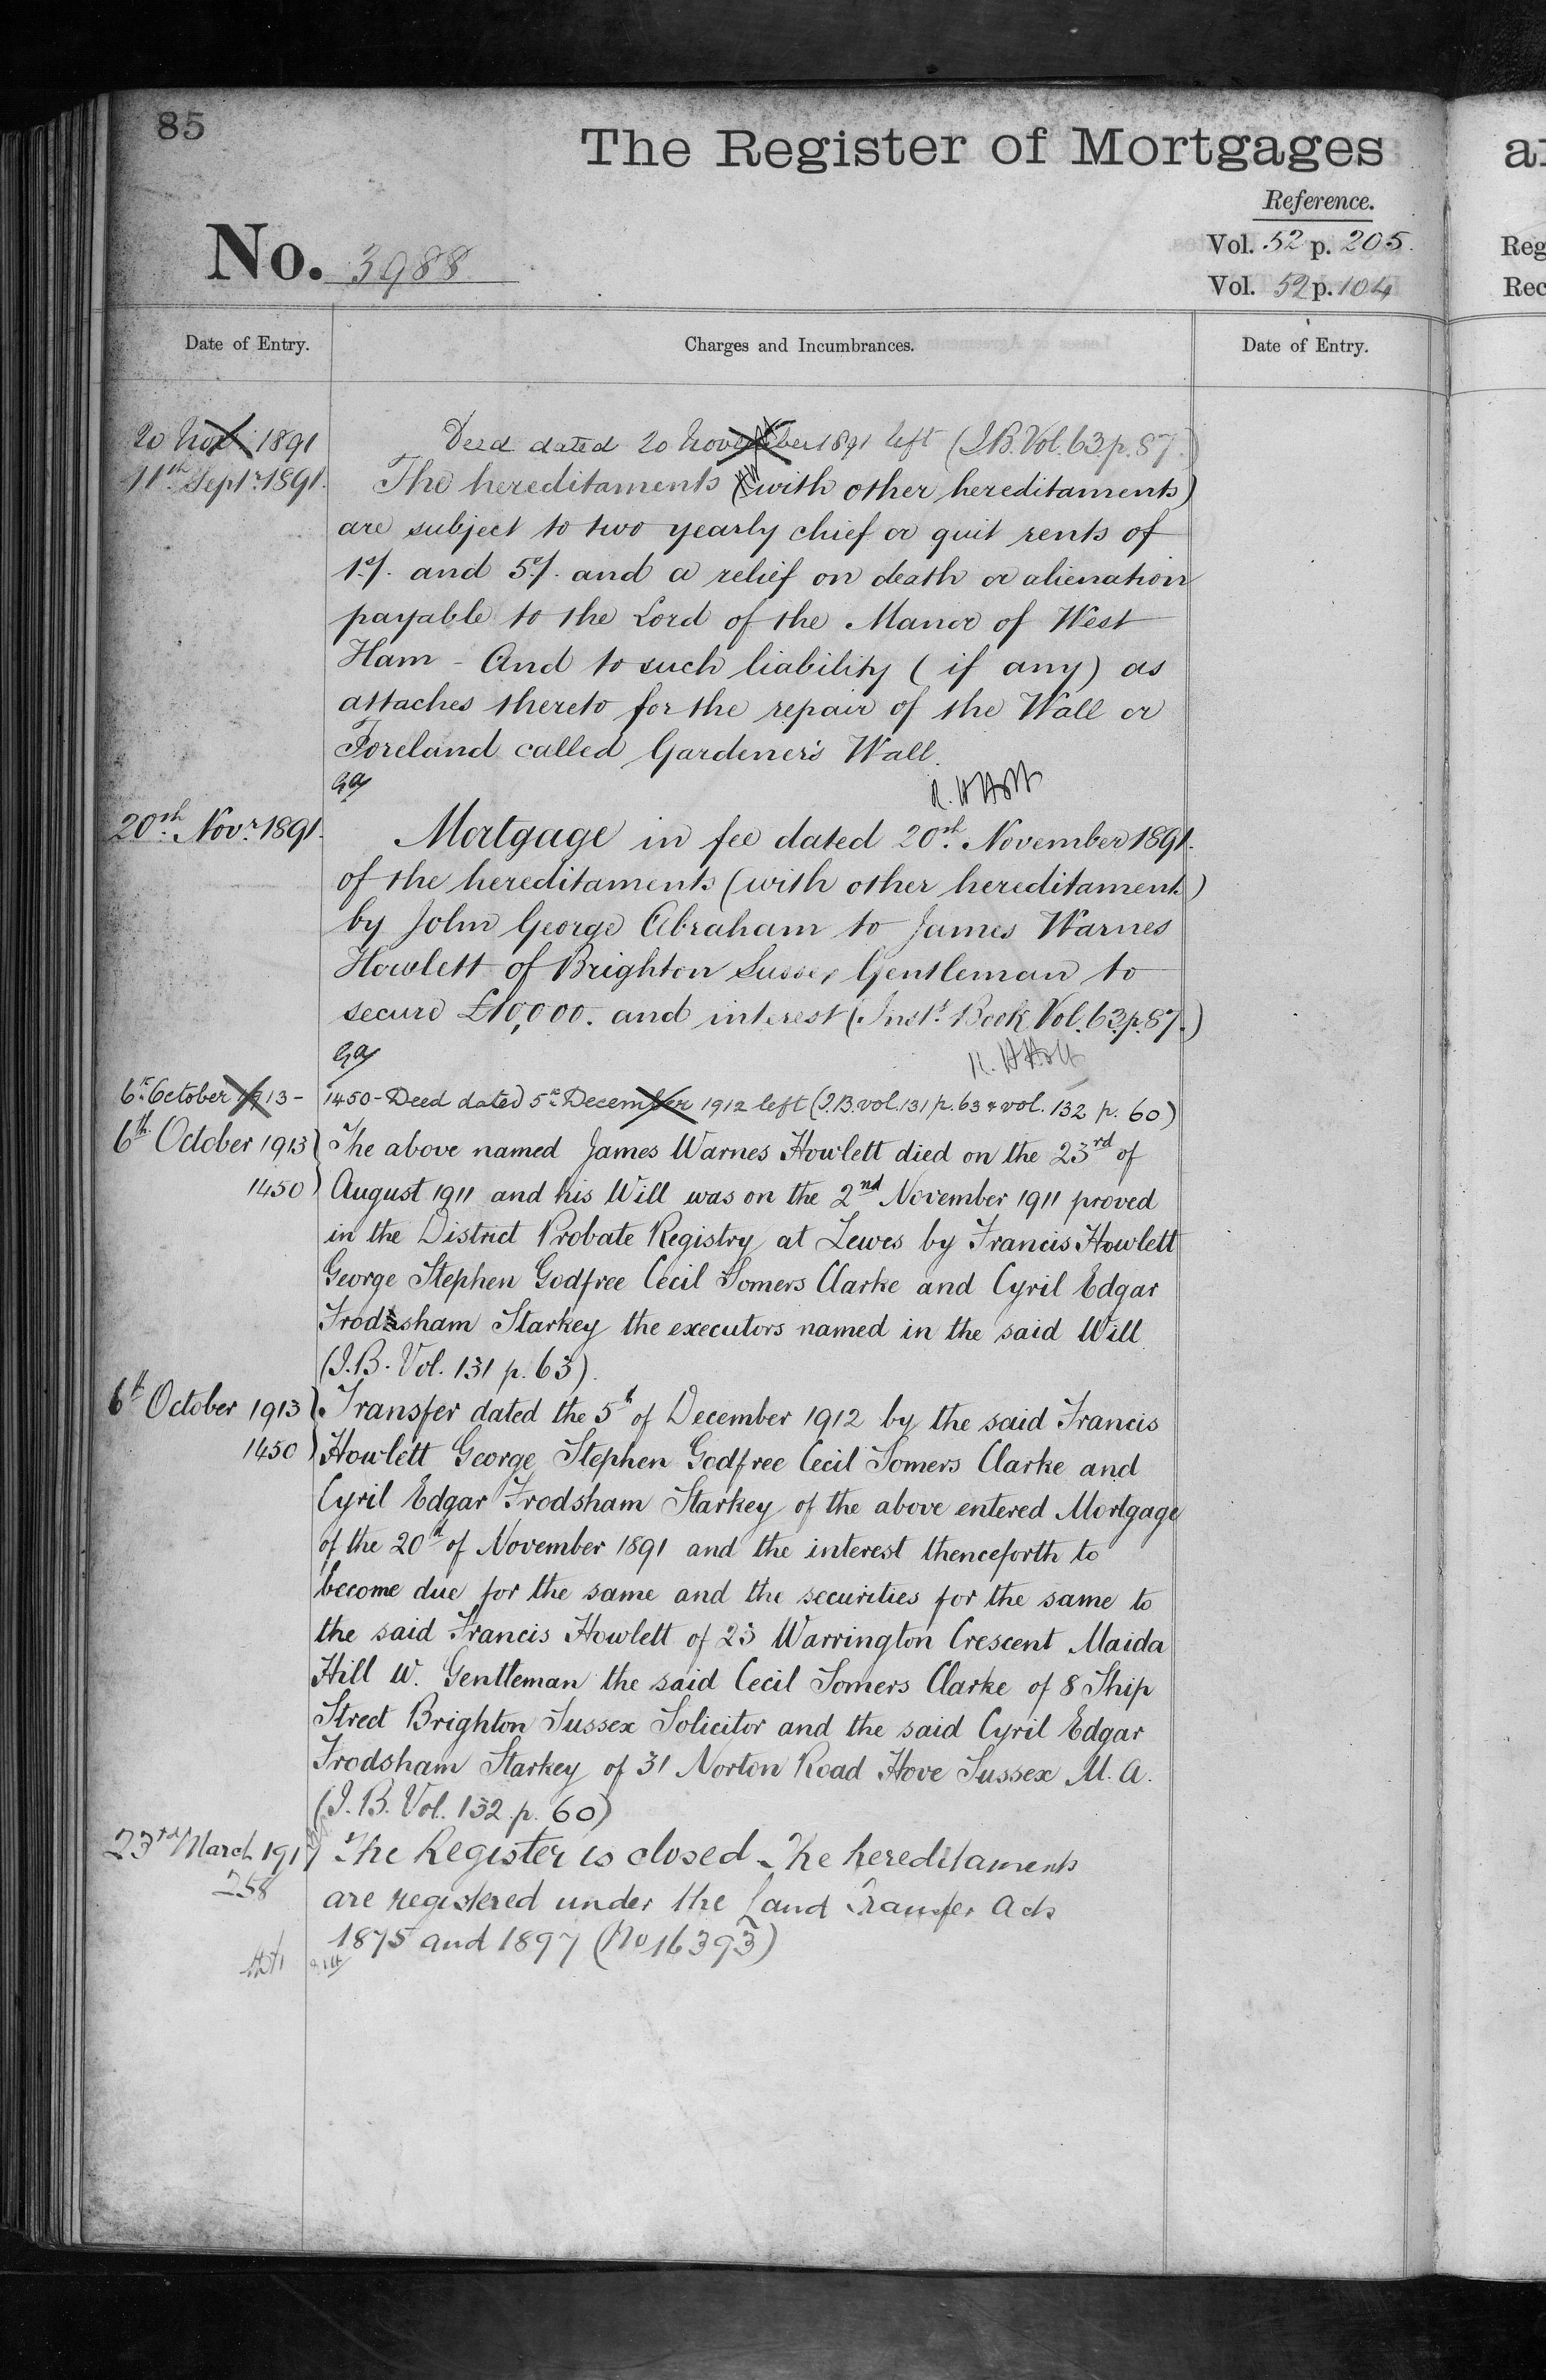 85
The Register of Mortgages
Reference.
No. 3988
Vol. 52 p. 205.
Vol. 52 p. 104
Date of Entry.
Charges and Incumbrances.
Date of Entry.
20 Nov 1891
Deed dated 20 November 1891 left (I.B. Vol. 63. p. 87.)
11th Septr. 1891.
The hereditaments (with other hereditaments)
are subject to two yearly chief or quit rents of
1s/. and 5s/. and a relief on death or alienation
payable to the Lord of the Manor of West
Ham - And to such liability (if any) as
attaches thereto for the repair of the Wall or
Foreland called Gardener's Wall.
20th. Novr. 1891.
Mortgage in fee dated 20th. November 1891.
of the hereditaments (with other hereditaments)
by John George Abraham to James Warnes
Howlett of Brighton Sussex Gentleman to
secure £10,000. and interest (Instt. Book Vol. 63. p. 87.)
6th October 1913 -
1450 - Deed dated 5th December 1912 left (I.B. vol. 131 p. 63 & vol. 132 p. 60)
6th October 1913)
1450)
The above named James Warnes Howlett died on the 23rd of
August 1911 and his Will was on the 2nd November 1911 proved
in the District Probate Registry at Lewes by Francis Howlett
George Stephen Godfree Cecil Somers Clarke and Cyril Edgar
Frodsham Starkey the executors named in the said Will
(I.B. Vol. 131 p. 63).
6th October 1913)
1450)
Transfer dated the 5th of December 1912 by the said Francis
Howlett George Stephen Godfree Cecil Somers Clarke and
Cyril Edgar Frodsham Starkey of the above entered Mortgage
of the 20th of November 1891 and the interest thenceforth to
become due for the same and the securities for the same to
the said Francis Howlett of 23 Warrington Crescent Maida
Hill W. Gentleman the said Cecil Somers Clarke of 8 Ship
Street Brighton Sussex Solicitor and the said Cyril Edgar
Frodsham Starkey of 31 Norton Road Hove Sussex M.A.
(I.B. Vol. 132 p. 60)
23rd March 191
258
The Register is closed - The hereditaments
are registered under the Land Transfer Acts
1875 and 1897 (No 16393)
Reg
Rec